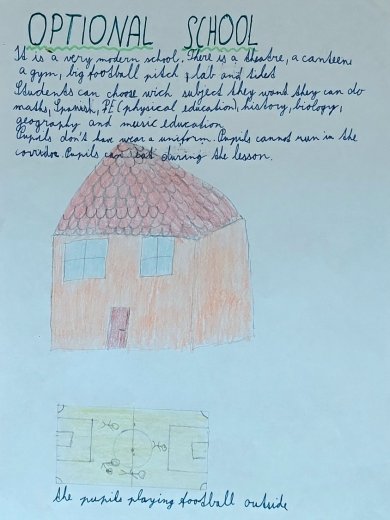 OPTIONAL SCHOOL
It is a very modern school. There is a theatre, a canteen,
a gym, big football pitch, lab and toilets
Students can choose wich subject they want they can do
maths, Spanish, PE (physical education), history, biology,
geography and music education
Pupils don't have wear a uniform. Pupils cannot run in the
corridor. Pupils can eat during the lesson.
the pupils playing football outside